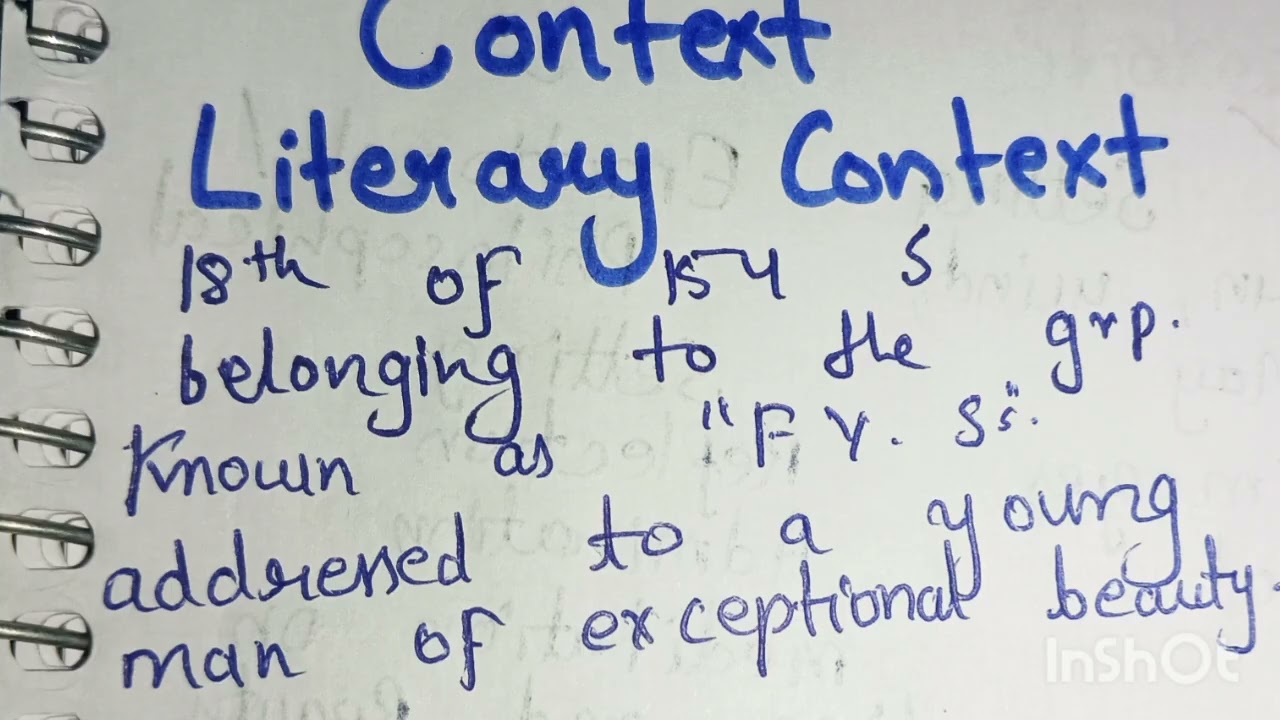 Context
Literary Context
18th of 154 S
belonging to the grp.
Known as "F Y. Ss".
addressed to a young
man of exceptional beauty.
InShOt